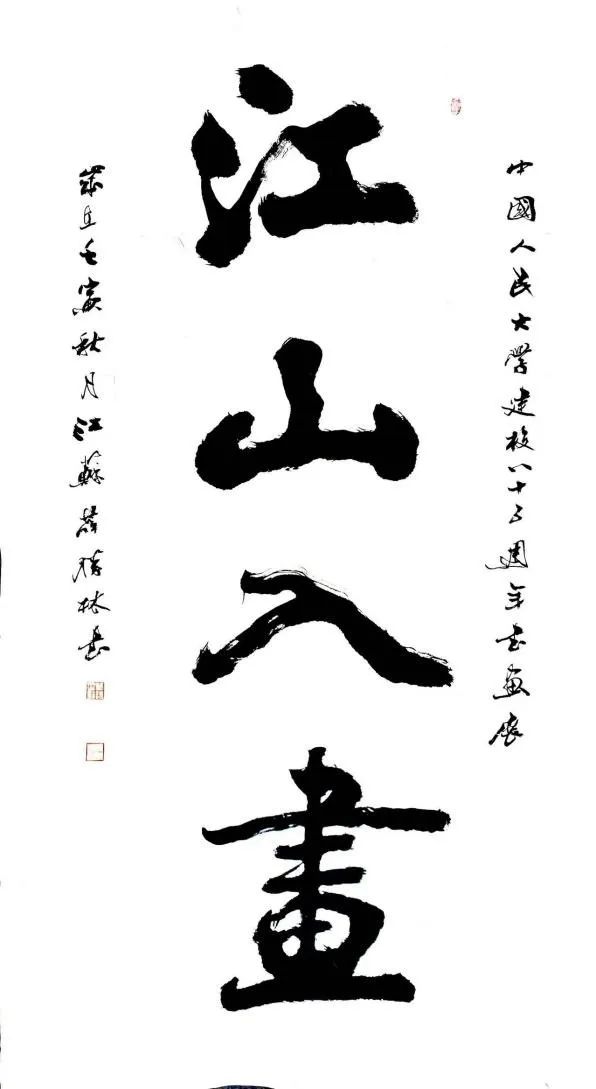 中國人民大學建校八十五週年書畫展
江山入畫
歲在壬寅秋月江蘇薛勝林書